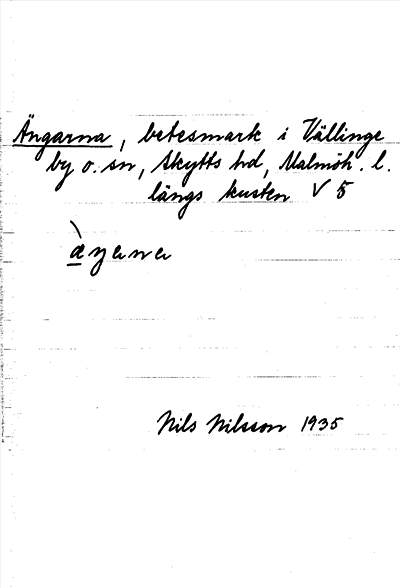 Ängarna, betesmark i Vällinge
by o. sn, Skytts hd, Malmöh. l.
längs kusten V 5
Nils Nilsson 1935